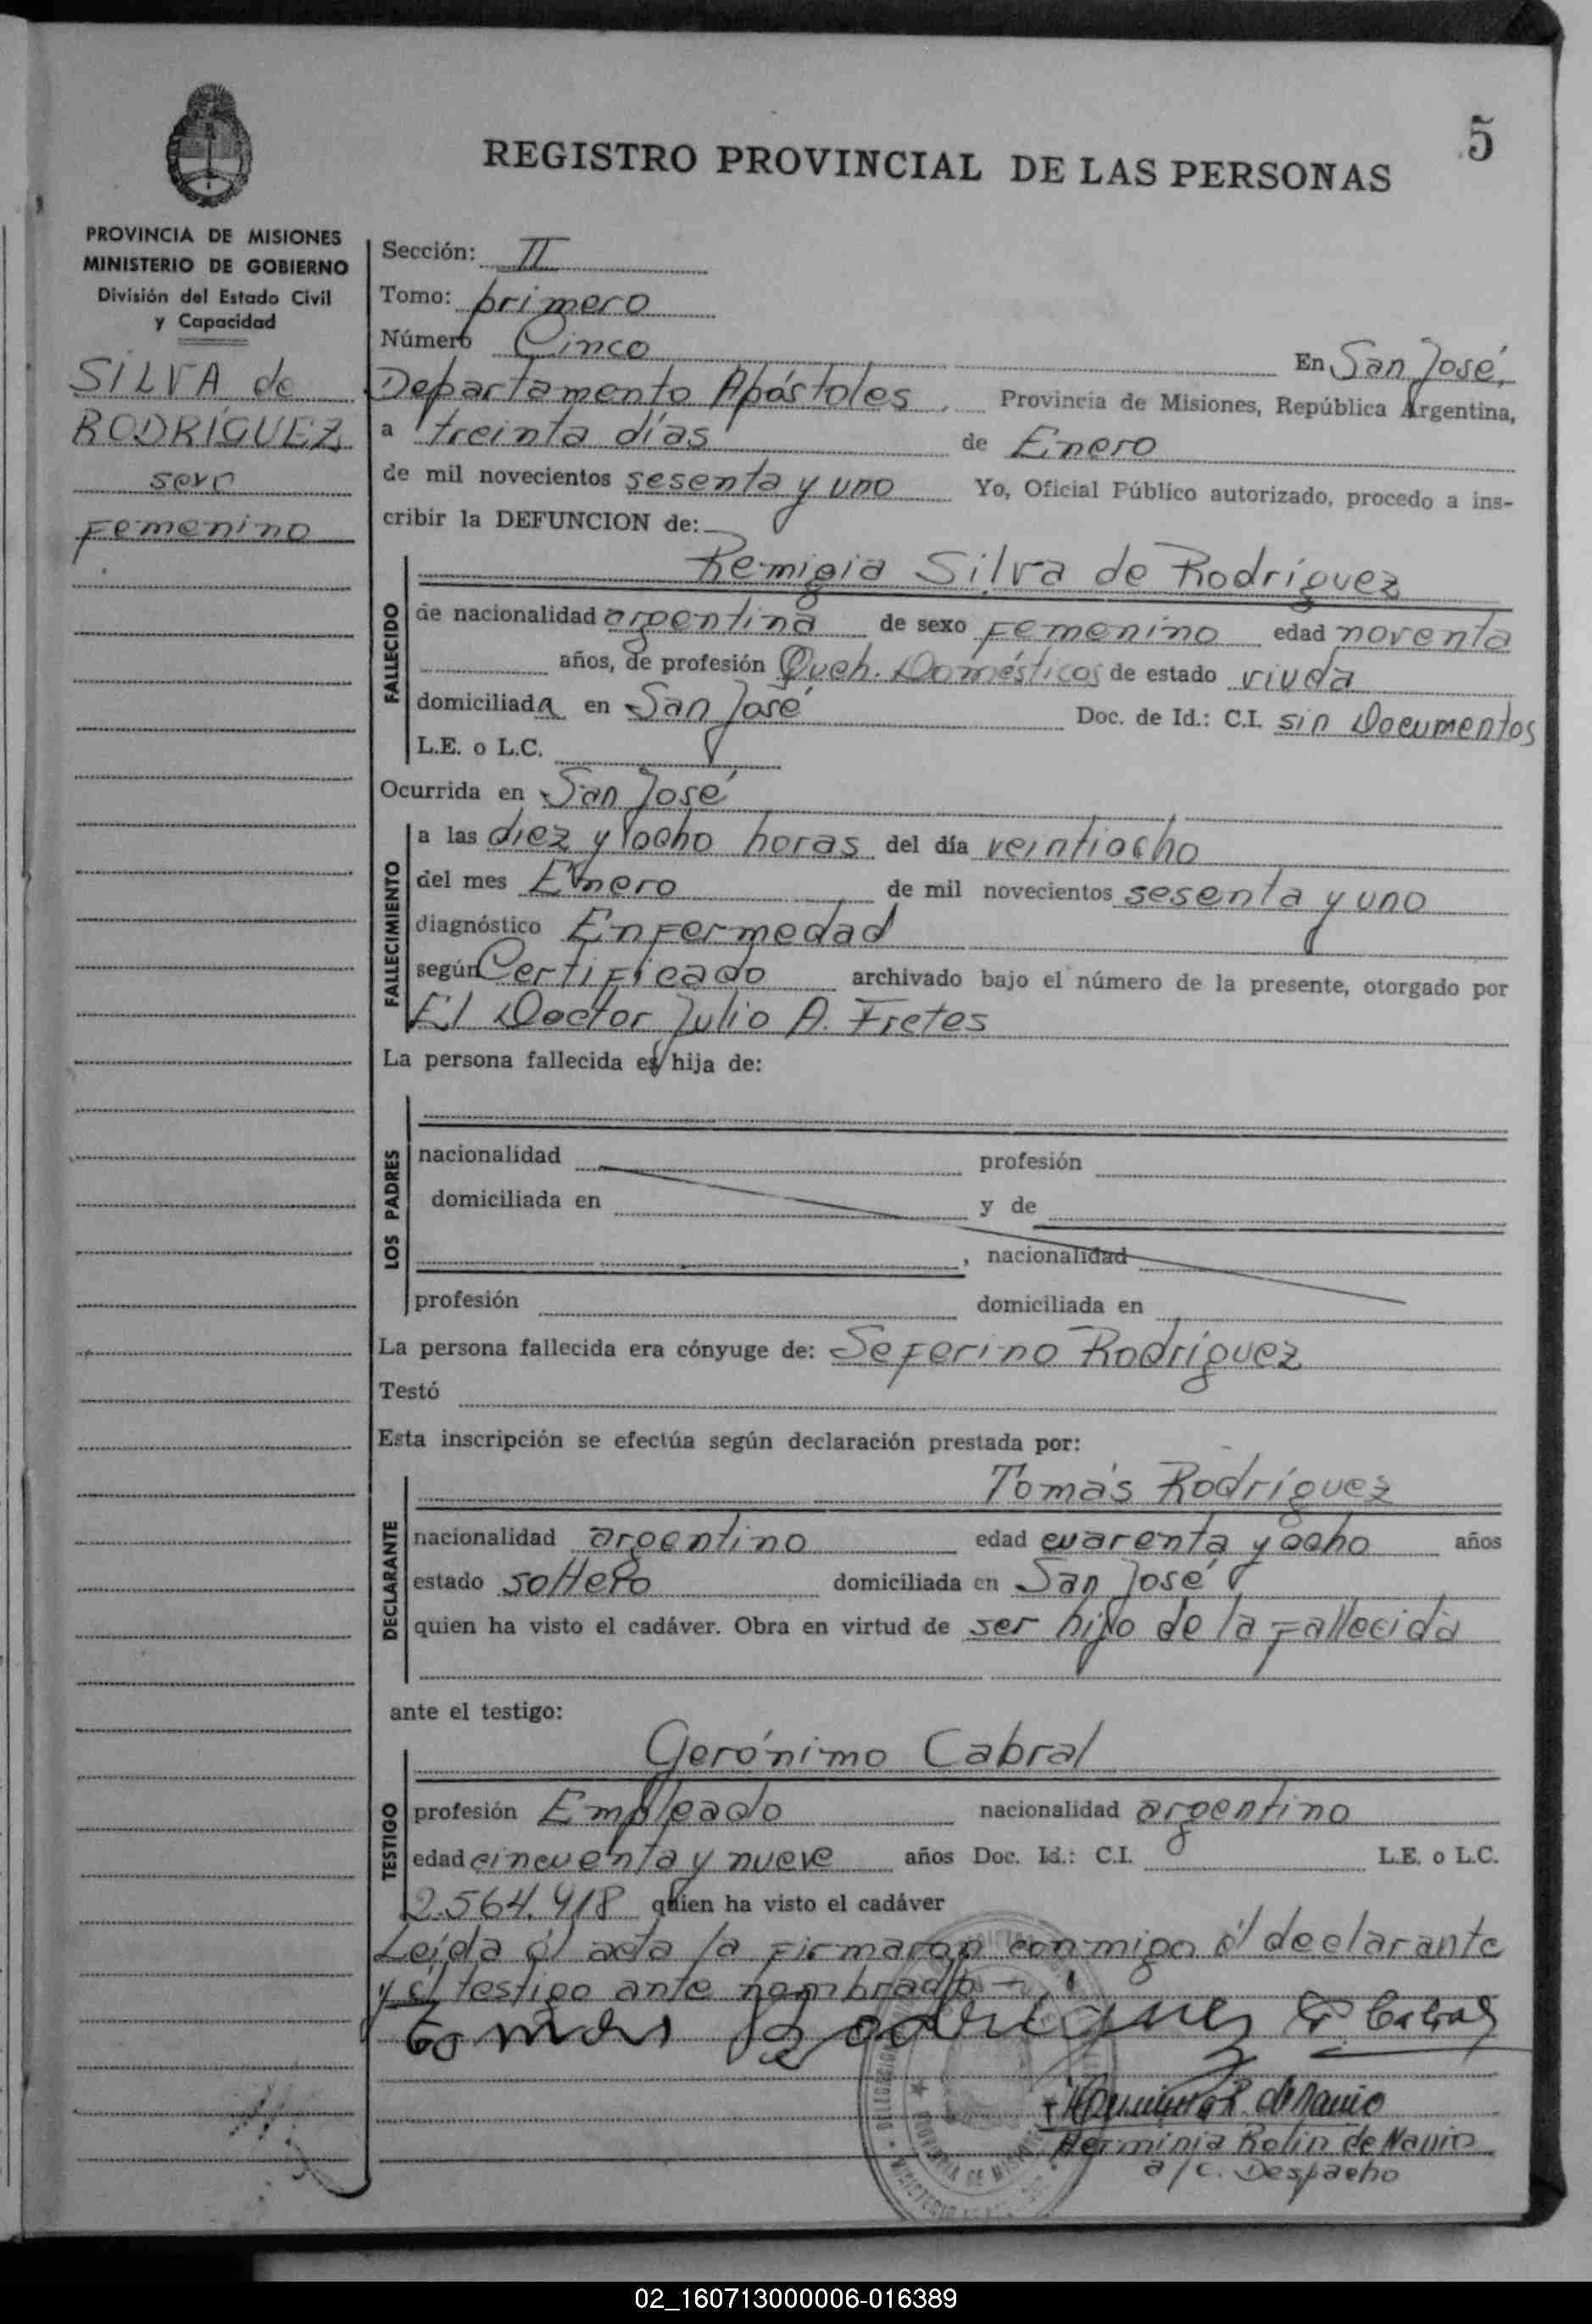 5
REGISTRO PROVINCIAL DE LAS PERSONAS
PROVINCIA DE MISIONES
MINISTERIO DE GOBIERNO
División del Estado Civil
y Capacidad
SILVA de
RODRÍGUEZ
sexo
Femenino
Sección: II
Tomo: primero
Número Cinco En San José,
Departamento Apóstoles, Provincia de Misiones, República Argentina,
a treinta días de Enero
de mil novecientos sesenta y uno Yo, Oficial Público autorizado, procedo a ins-
cribir la DEFUNCION de:
Remigia Silva de Rodríguez
FALLECIDO
de nacionalidad argentina de sexo Femenino edad noventa
años, de profesión Queh. Domésticos de estado viuda
domiciliada en San José Doc. de Id.: C.I. sin Documentos
L.E. o L.C.
Ocurrida en San José
FALLECIMIENTO
a las diez y ocho horas del día veintiocho
del mes Enero de mil novecientos sesenta y uno
diagnóstico Enfermedad
según Certificado archivado bajo el número de la presente, otorgado por
El Doctor Julio A. Fretes
La persona fallecida es hija de:
LOS PADRES
nacionalidad profesión
domiciliada en y de
, nacionalidad
profesión domiciliada en
La persona fallecida era cónyuge de: Seferino Rodríguez
Testó
Esta inscripción se efectúa según declaración prestada por:
Tomás Rodríguez
DECLARANTE
nacionalidad argentino edad cuarenta y ocho años
estado soltero domiciliada en San José
quien ha visto el cadáver. Obra en virtud de ser hijo de la Fallecida
ante el testigo:
Gerónimo Cabral
TESTIGO
profesión Empleado nacionalidad argentino
edad cincuenta y nueve años Doc. Id.: C.I. L.E. o L.C.
2.564.418 quien ha visto el cadáver
Leída el acta la Firmaron conmigo el declarante
y el testigo ante nombrado
Tomas Rodriguez G. Cabral
Herminia Rolin de Nannio
a/c. Despacho
02_160713000006-016389